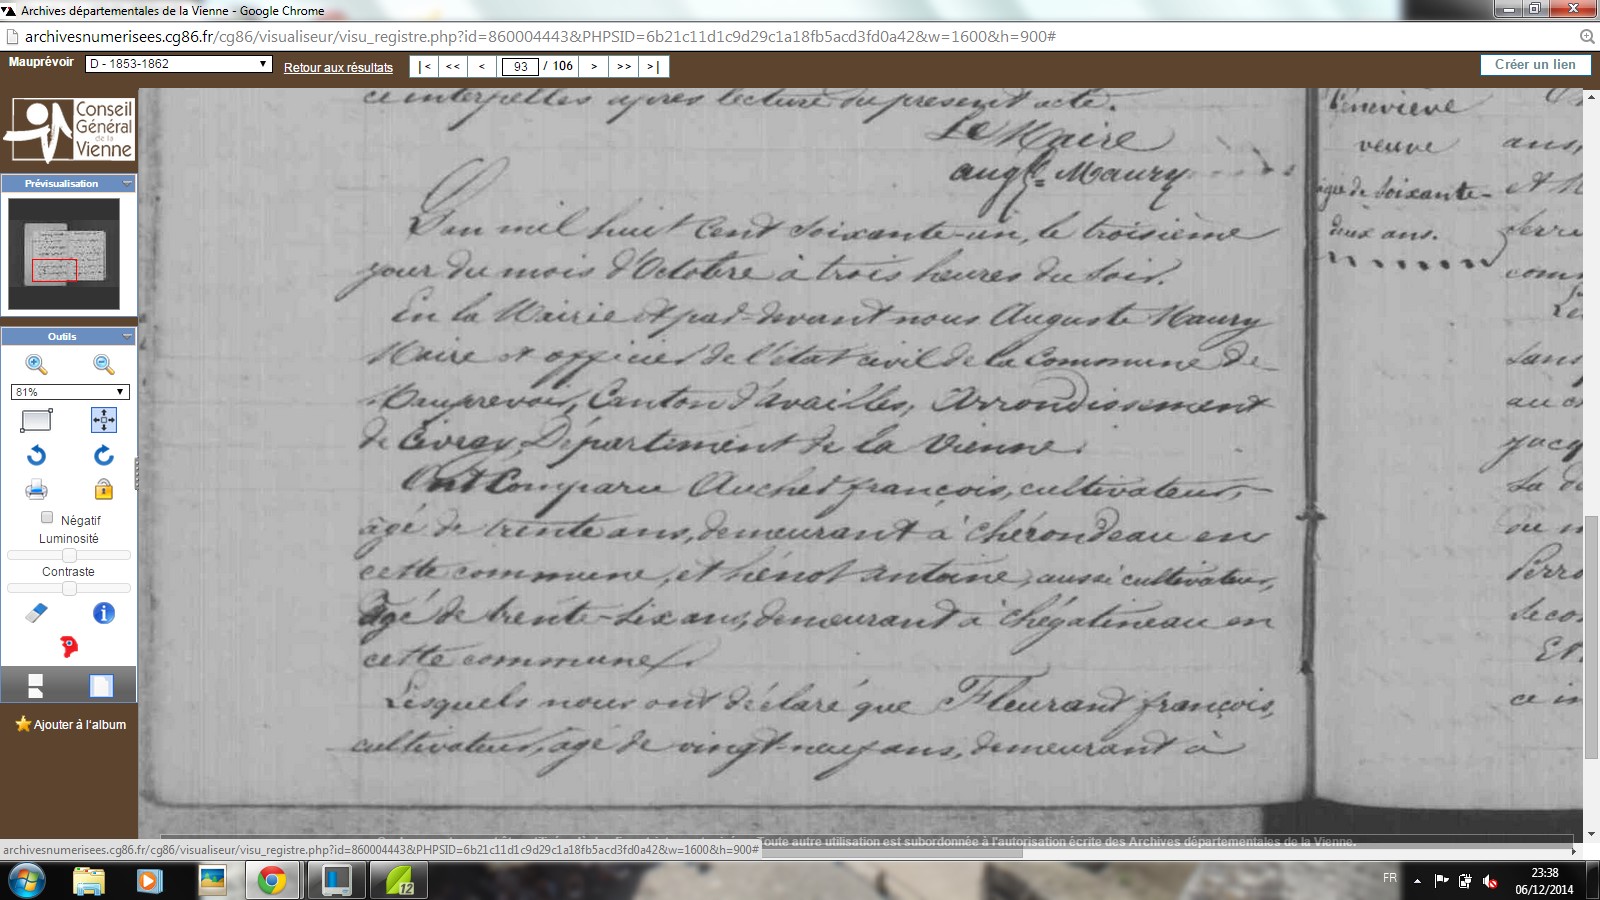 Archives départementales de la Vienne - Google Chrome
archivesnumerisees.cg86.fr/cg86/visualiseur/visu_registre.php?id=860004443&PHPSID=6b21c11d1c9d29c1a18fb5acd3fd0a42&w=1600&h=900#
Mauprévoir D - 1853-1862 Retour aux résultats |< << < 93 / 106 > >> >| Créer un lien
Conseil
Général
de la
Vienne
Prévisualisation
Outils
81%
Négatif
Luminosité
Contraste
Ajouter à l'album
ce interpellés après lecture du présent acte.
Le Maire
augte Maury
L'an mil huit cent soixante-un, le troisième
jour du mois d'Octobre à trois heures du soir.
En la Mairie et par-devant nous Auguste Maury
Maire et officier de l'état civil de la commune de
Mauprevoir, Canton d'availles, Arrondissement
de Civray, Département de la Vienne.
Ont Comparu Aucher françois, cultivateur,
âgé de trente ans, demeurant à chérondeau en
cette commune, et hénot antoine, aussi cultivateur,
âgé de trente-six ans, demeurant à chégatineau en
cette commune.
Lesquels nous ont déclaré que Fleurant françois,
cultivateur, âgé de vingt-neuf ans, demeurant à
Geneviève
veuve
âgée de soixante-
deux ans.
ans,
comm
sans
au
jacq
sa
Perro
ce in
Toute autre utilisation est subordonnée à l'autorisation écrite des Archives départementales de la Vienne.
archivesnumerisees.cg86.fr/cg86/visualiseur/visu_registre.php?id=860004443&PHPSID=6b21c11d1c9d29c1a18fb5acd3fd0a42&w=1600&h=900#
12
FR
23:38
06/12/2014